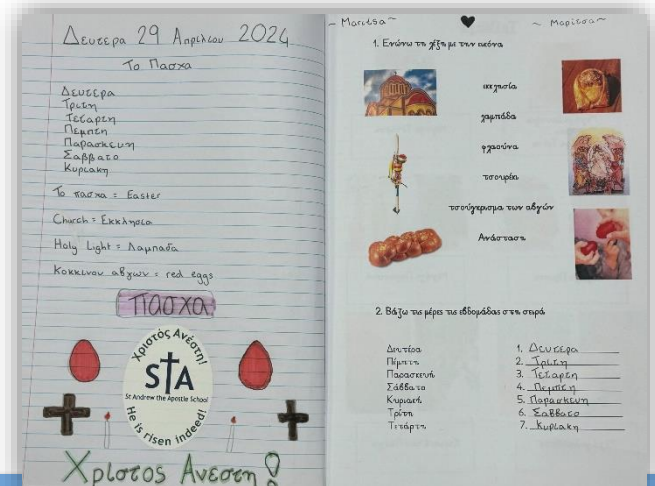 Δευτερα 29 Απριλιου 2024
Το Πασχα
Δευτερα
Τριτη
Τεταρτη
Πεμπτη
Παρασκευη
Σαββατο
Κυριακη
Το πασχα = Easter
Church = Εκκλησια
Holy Light = Λαμπαδα
Κοκκινου αβγων = red eggs
Πασχα
Χριστός Ανέστη!
STA
St Andrew the Apostle School
He is risen indeed!
Χριστος Ανεστη!
~ Maritsa ~
~ Μαριτσα ~
1. Ενώνω τη λέξη με την εικόνα
εκκλησία
λαμπάδα
φλαούνα
τσουρέκι
τσούγκρισμα των αβγών
Ανάσταση
2. Βάζω τις μέρες τις εβδομάδας στη σειρά
Δευτέρα
Πέμπτη
Παρασκευή
Σάββατο
Κυριακή
Τρίτη
Τετάρτη
1. Δευτερα
2. Τριτη
3. Τεταρτη
4. Πεμπτη
5. Παρασκευη
6. Σαββατο
7. Κυριακη